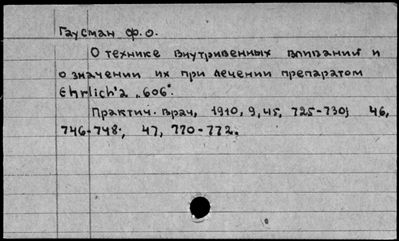 Гаусман Ф.О.
О технике внутривенных вливаний и
о значении их при лечении препаратом
Ehrlich'a „606".
Практич. врач, 1910, 9, 45, 725-730; 46,
746-748; 47, 770-772.